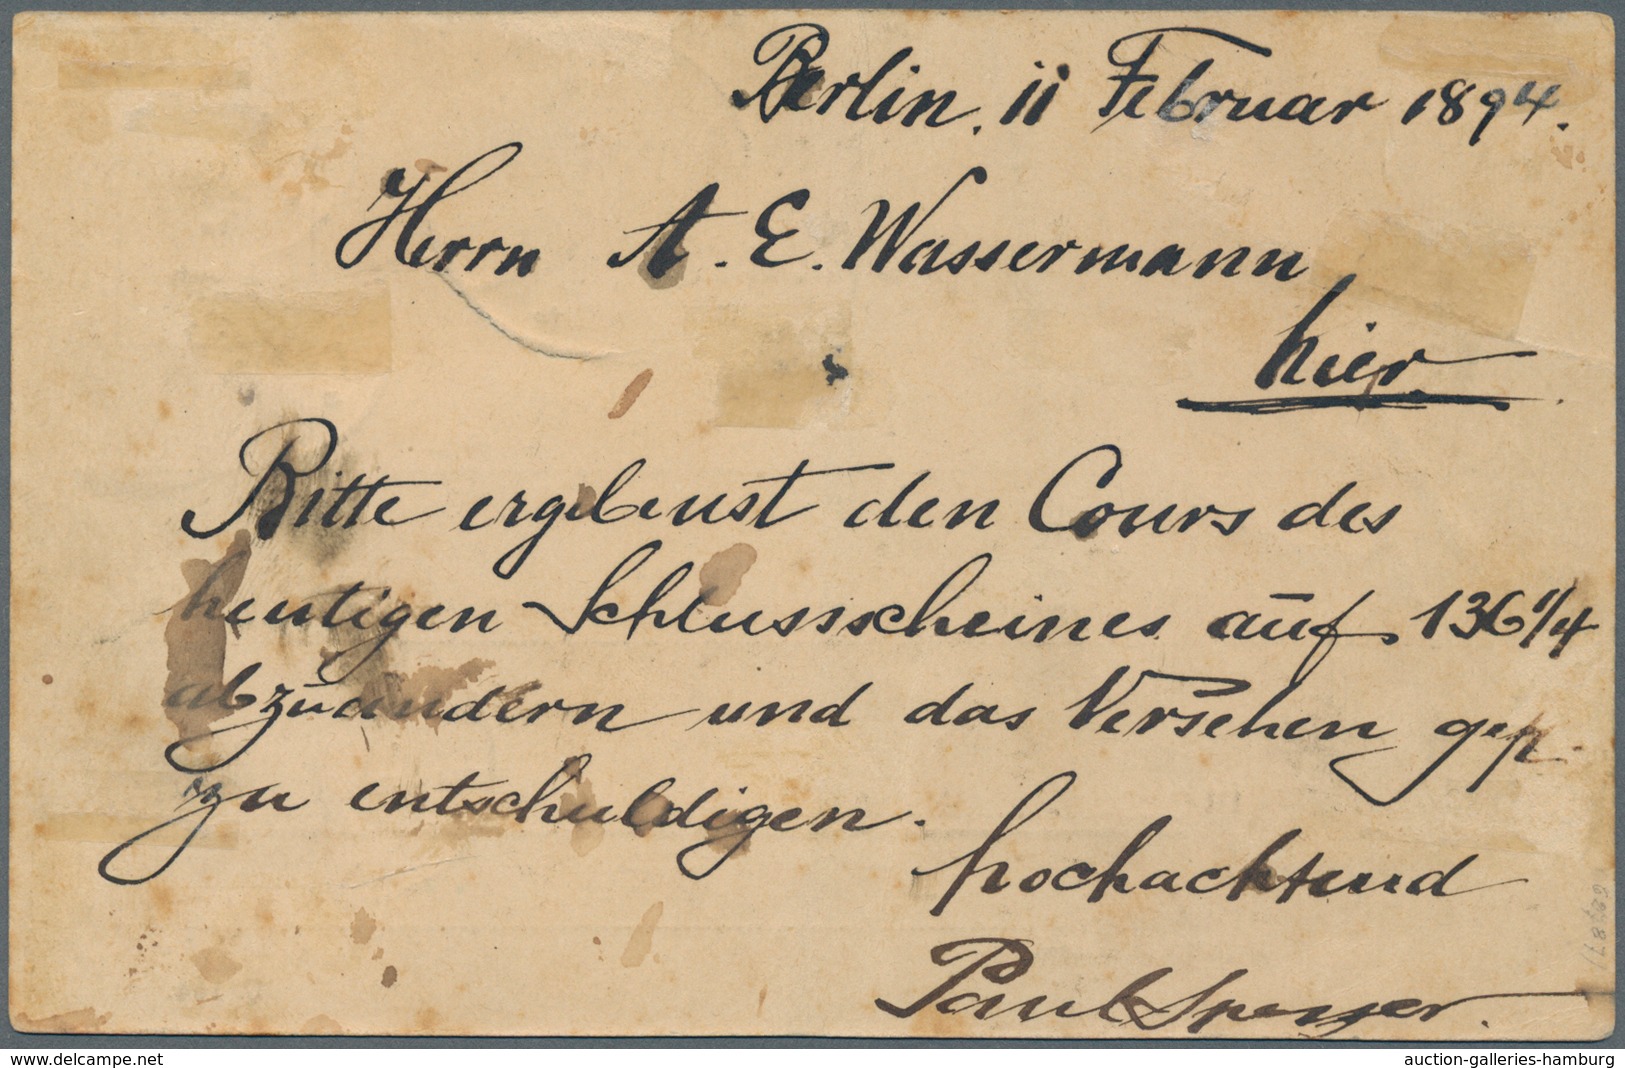 Berlin, 11 Februar 1894.
Herrn A. E. Wassermann
hier
Bitte ergebenst den Cours des
heutigen Schlussscheines auf 136 1/4
abzuändern und das Versehen gefl.
zu entschuldigen.
hochachtend
Paul
delcampe.net
auction-galleries-hamburg